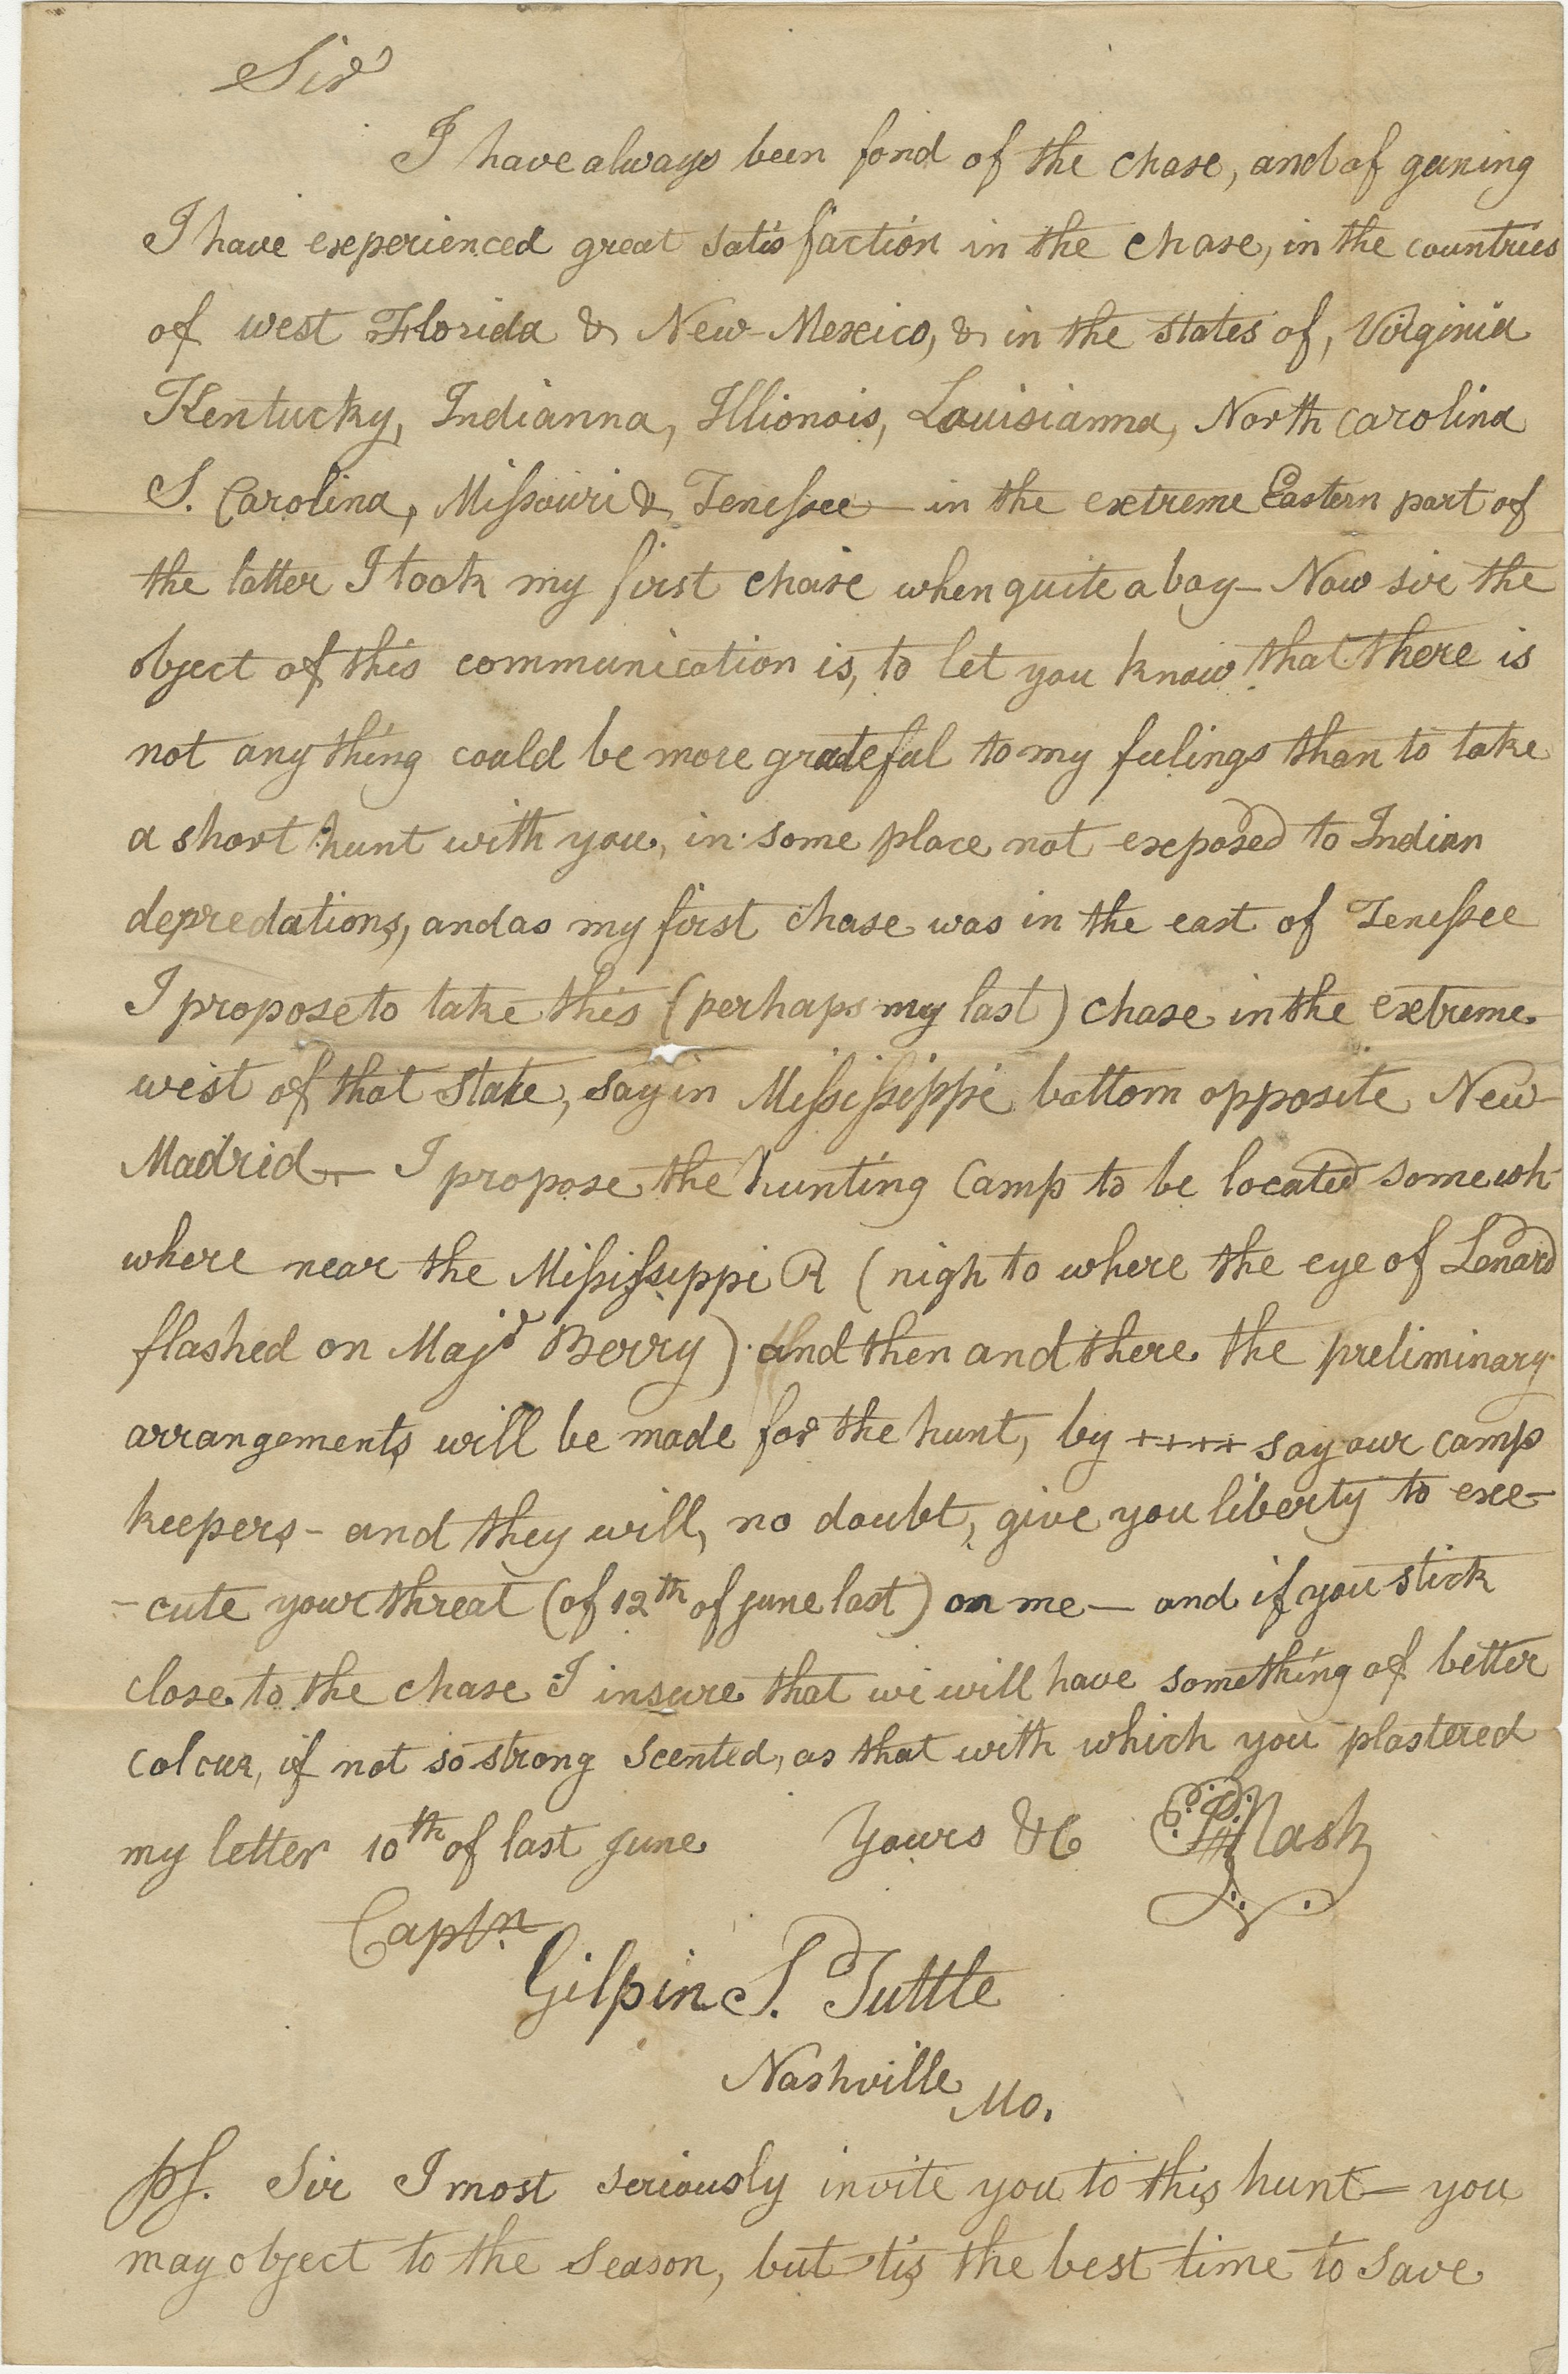 Sir
I have always been fond of the chase, and of guning
I have experienced great satisfaction in the chase, in the countries
of west Florida & New-Mexico, & in the states of, Virginia
Kentucky, Indianna, Illionois, Louisianna, North carolina
S. Carolina, Missouri & Tenessee — in the extreme Eastern part of
the latter I took my first chase when quite a boy — Now sir the
object of this communication is, to let you know that there is
not any thing could be more grateful to my feelings than to take
a short hunt with you, in some place not exposed to Indian
depredations, and as my first chase was in the east of Tenessee
I propose to take this (perhaps my last) chase in the extreme
west of that state, say in Mississippi bottom opposite New-
Madrid — I propose the hunting Camp to be located somewh-
where near the Mississippi R (nigh to where the eye of Lenard
flashed on Majr Berry) and then and there the preliminary
arrangements will be made for the hunt, by ++++ say our camp
keepers - and they will, no doubt, give you liberty to exe-
-cute your threat (of 12th of june last) on me — and if you stick
close to the chase I insure that we will have something of better
colour, if not so strong scented, as that with which you plastered
my letter 10th of last june Yours &C Nash
Captn
Gilpin S. Tuttle
Nashville Mo.
pS. Sir I most seriously invite you to this hunt — you
may object to the season, but tis the best time to save